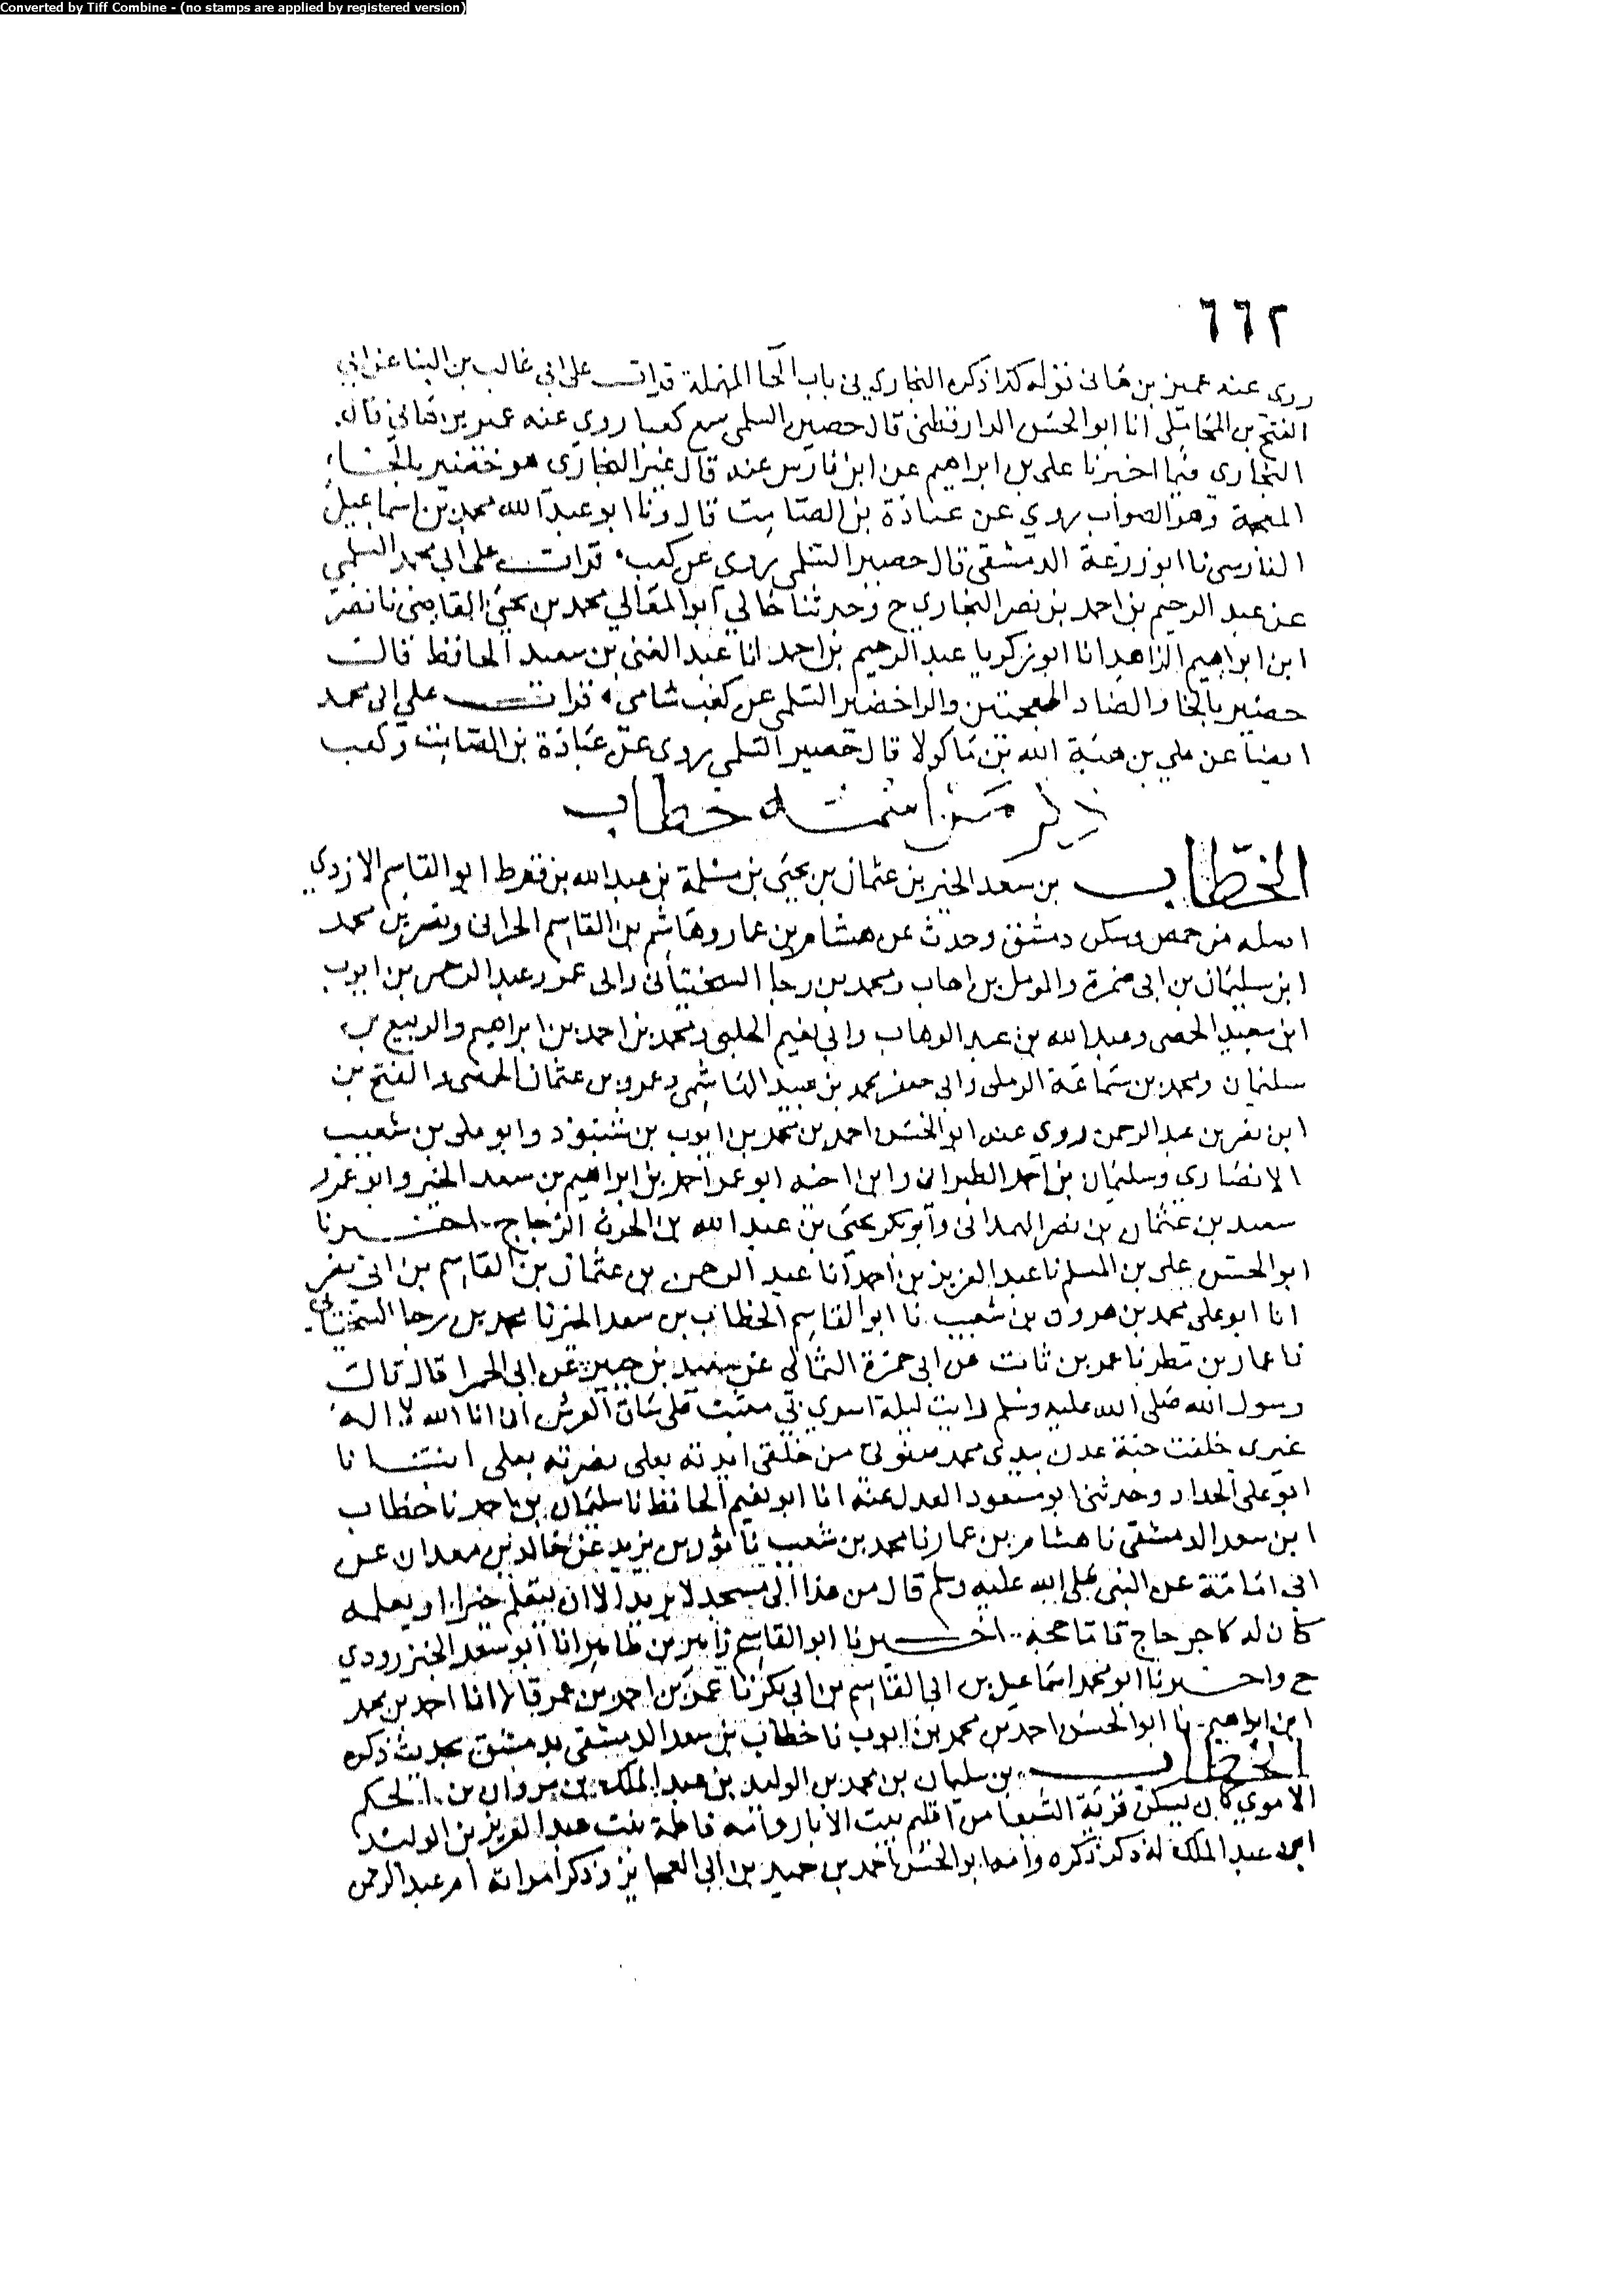 Converted by Tiff Combine - (no stamps are applied by registered version)
٦٦٢
روى عنه عمير بن هانى قوله كذا ذكره البخاري في باب الحا المهملة قرات على ابي غالب بن البنا عن ابي
الفتح بن المحاملى انا ابو الحسن الدارقطنى قال حصين السلمى سمع كعبا روى عنه عمير بن هاني قال
البخارى فيما اخبرنا على بن ابراهيم عن ابن فارس عنه قال غير البخارى هو خضير بالخاء
المعجمة وهو الصواب يروي عن عبادة بن الصامت قال ونا ابو عبد الله محمد بن اسماعيل
الفارسى نا ابو زرعة الدمشقى قال حصير السلمى يروى عن كعب قرات على ابي محمد السلمي
عن عبد الرحيم بن احمد بن نصر البخاري ح وحدثنا خالي ابو المعالي محمد بن يحيى القاضى نا نصر
ابن ابراهيم الزاهد انا ابو زكريا عبد الرحيم بن احمد انا عبد الغنى بن سعيد الحافظ قال
خضير بالخا والضاد المعجمتين والرا خضير السلمى عن كعب شامى قرات على ابى محمد
ايضا عن علي بن هبة الله بن ماكولا قال خضير السلمي يروى عن عبادة بن الصامت وكعب
ذكر من اسمه خطاب
الخطاب بن سعد الخير بن عثمان بن يحيى بن مسلمة بن عبد الله بن قرط ابو القاسم الازدي
اصله من حمص وسكن دمشق وحدث عن هشام بن عمار وهاشم بن القاسم الحرانى ونصر بن محمد
ابن سليمان بن ابى ضمرة والمومل بن اهاب ومحمد بن رجا السختيانى وابى عمرو عبد الرحمن بن ايوب
ابن سعيد الحمصى وعبد الله بن عبد الوهاب وابي نعيم الحلبي ومحمد بن احمد بن ابراهيم والربيع بن
سليمان ومحمد بن سماعة الرملى وابي جعفر محمد بن عبيد الهاشمى وعمرو بن عثمان الحمصى والفتح بن
ابن نصر بن عبد الرحمن روي عنه ابو الحسن احمد بن محمد بن ايوب بن شنبوذ وابو على بن شعيب
الانصارى وسليمان بن احمد الطبرانى وابن اخيه ابو عمر احمد بن ابراهيم بن سعد الخير وابو عمرو
سعيد بن عثمان بن نصر الهمدانى وابو بكر يحيى بن عبد الله بن الحرث الزجاج اخبرنا
ابو الحسن على بن المسلم نا عبد العزيز بن احمد انا عبد الرحمن بن عثمان بن القاسم بن ابى نصر
انا ابو على محمد بن هرون بن شعيب نا ابو القاسم الخطاب بن سعد الخير نا محمد بن رجا السختياني
نا عمار بن مطر نا عمرو بن ثابت عن ابى حمزة الثمالى عن سعيد بن جبير عن ابى الحمرا قال قال
رسول الله صلى الله عليه وسلم رايت ليلة اسري بي مثبت على ساق العرش ان انا الله لا اله
غيرى خلقت جنة عدن بيدى محمد صفوتي من خلقى ايدته بعلى نصرته بعلى انبانا
ابو على الحداد وحدثنى ابو مسعود العدل عنه انا ابو نعيم الحافظ نا سليمان بن احمد نا خطاب
ابن سعد الدمشقى نا هشام بن عمار نا محمد بن شعيب نا ثور بن يزيد عن خالد بن معدان عن
ابى امامة عن النبى صلى الله عليه وسلم قال من غدا الى مسجد لا يريد الا ان يتعلم خيرا او يعلمه
كان له كاجر حاج تاما حجه اخبرنا ابو القاسم زاهر بن طاهر انا ابو سعد الجنزرودي
ح واخبرنا ابو محمد اسماعيل بن ابى القاسم بن ابى بكر نا عمر بن احمد بن عمر قالا انا احمد بن محمد
ابن ابراهيم نا ابو الحسن احمد بن محمد بن ايوب نا خطاب بن سعد الدمشقى بدمشق بحديث ذكره
الخطاب بن سليمان بن محمد بن الوليد بن عبد الملك بن مروان بن الحكم
الاموي كان يسكن قرية من اقليم بيت الابار وامه فاطمة بنت عبد العزيز بن الوليد
ابن عبد الملك له ذكر ذكره ابو الحسن احمد بن حميد بن ابي العجايز وذكر امراته ام عبد الرحمن